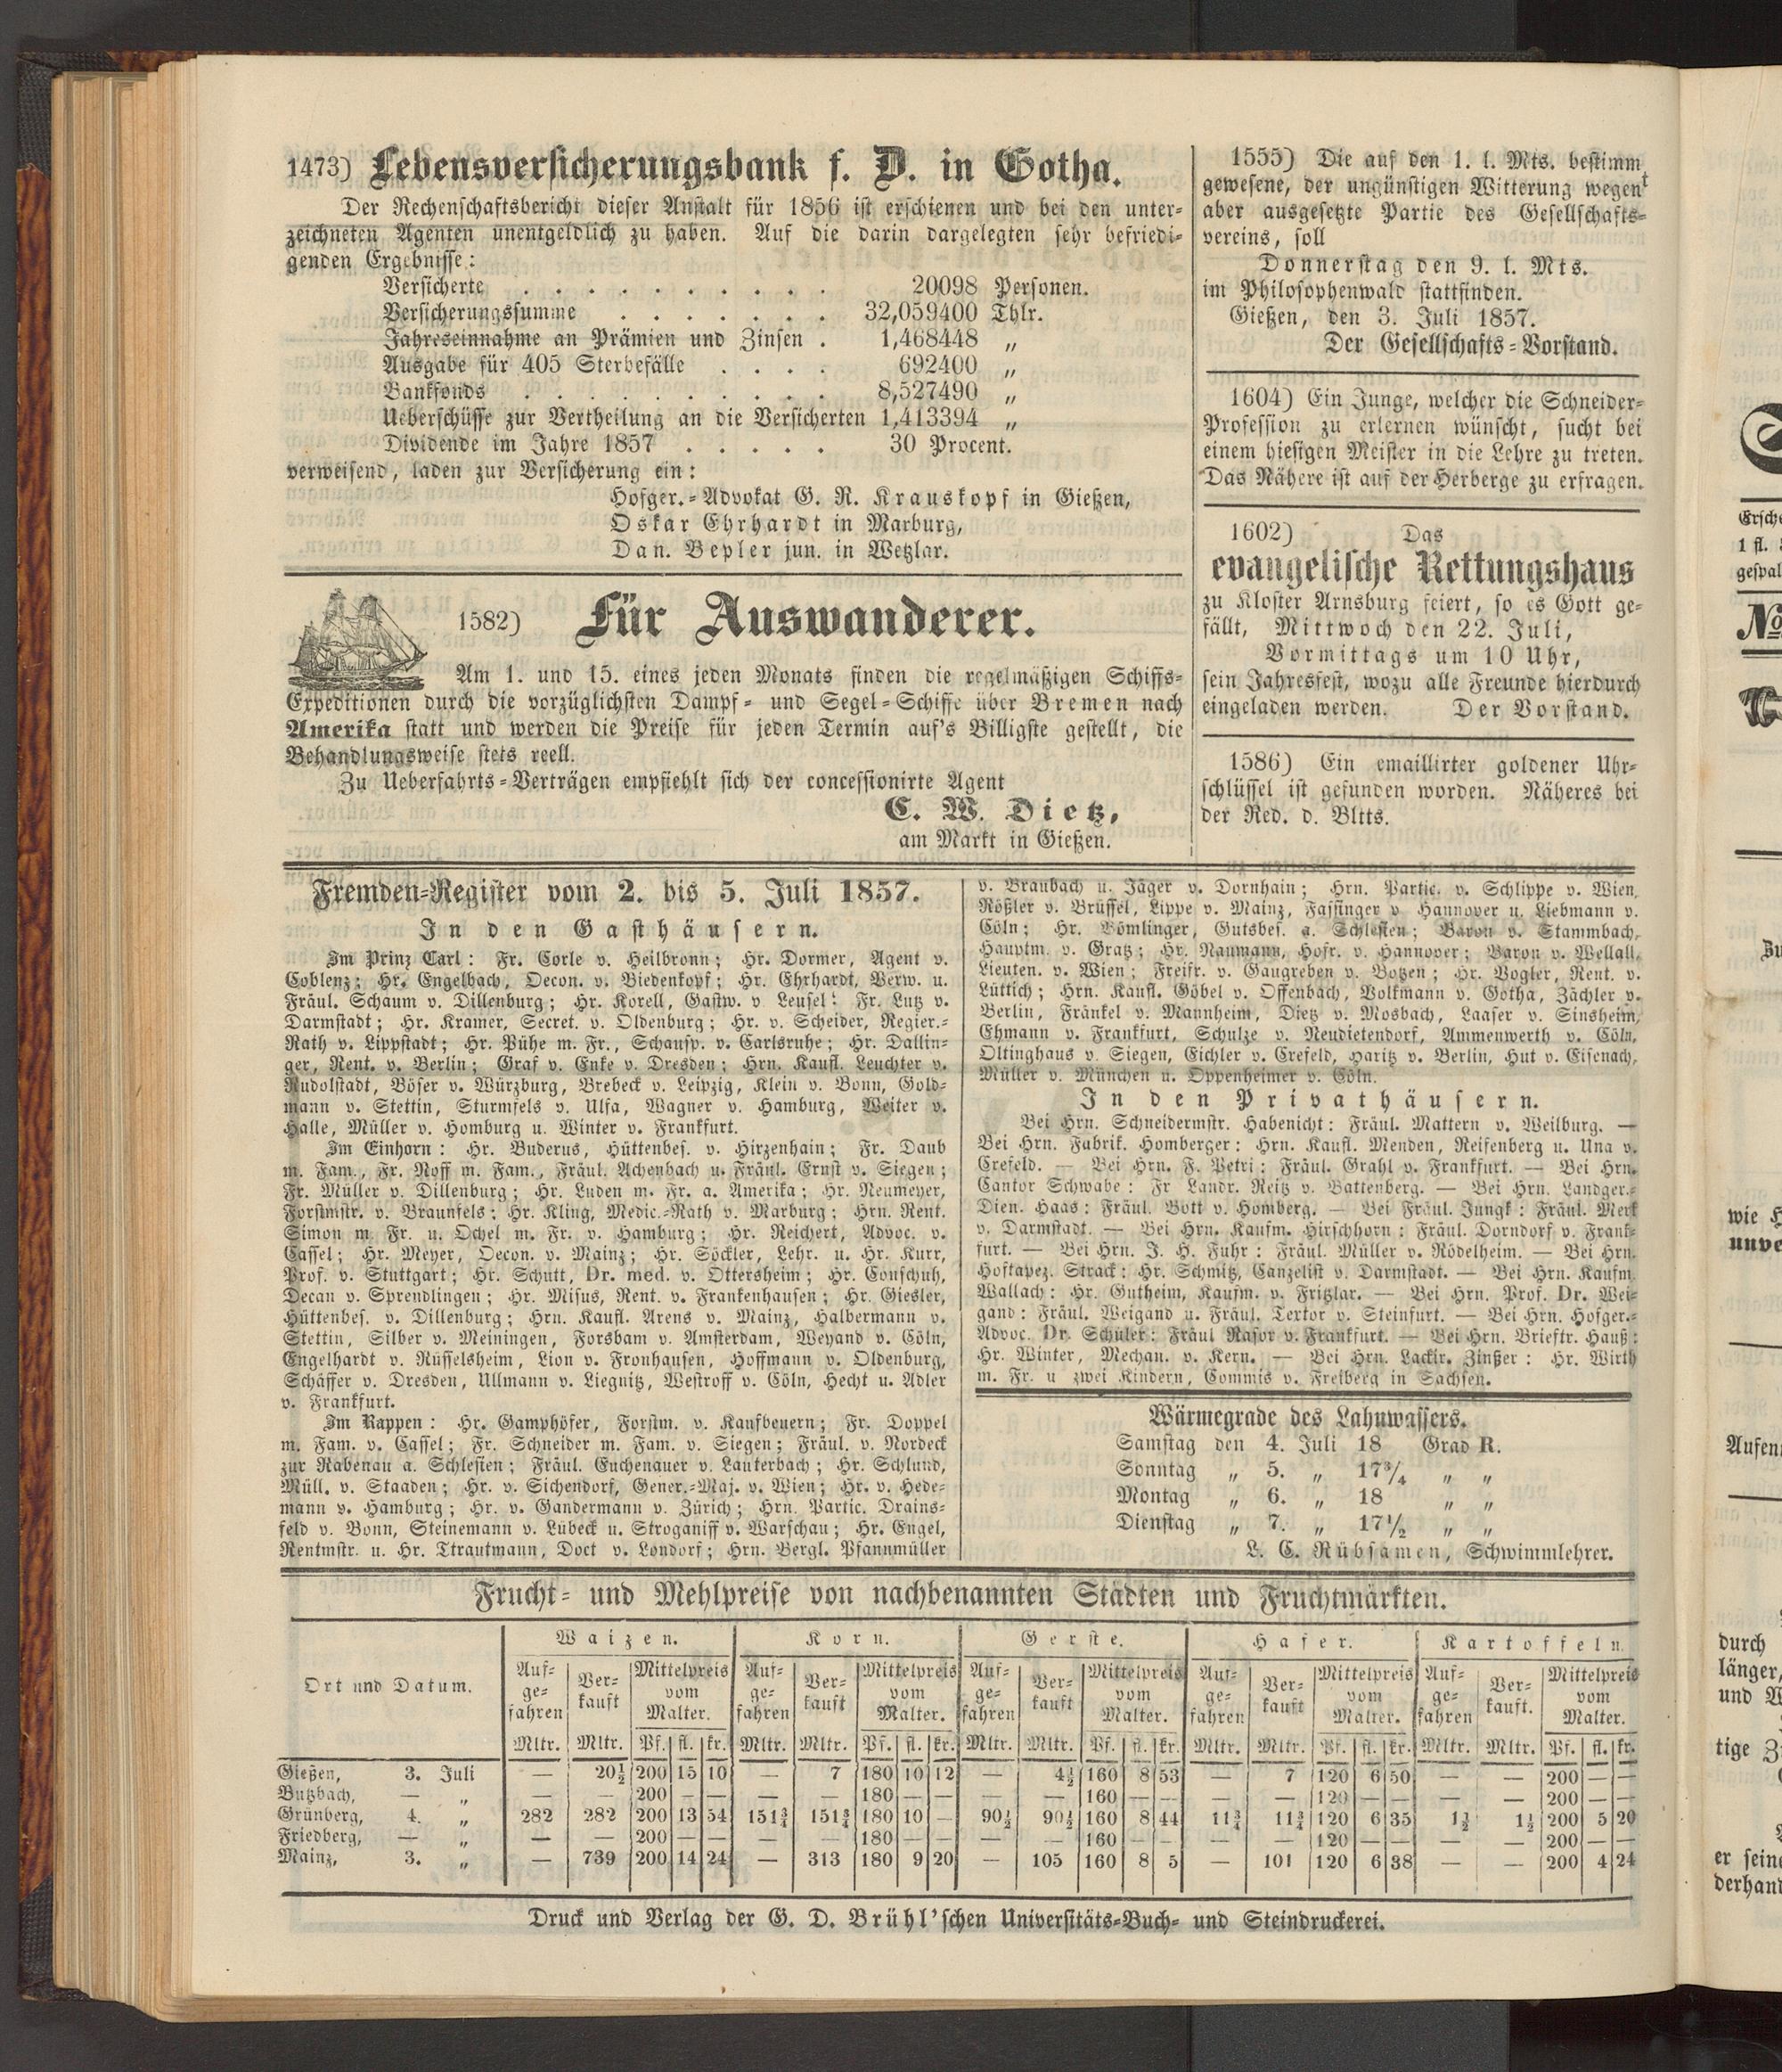 1473) Lebensversicherungsbank f. D. in Gotha.
Der Rechenschaftsbericht dieser Anstalt für 1856 ist erschienen und bei den unter-
zeichneten Agenten unentgeldlich zu haben. Auf die darin dargelegten sehr befriedi-
genden Ergebnisse:
Versicherte . . . . . . . . . . 20098 Personen.
Versicherungssumme . . . . . . . 32,059400 Thlr.
Jahreseinnahme an Prämien und Zinsen . 1,468448 „
Ausgabe für 405 Sterbefälle . . . . 692400 „
Bankfonds . . . . . . . . . . 8,527490 „
Ueberschüsse zur Vertheilung an die Versicherten 1,413394 „
Dividende im Jahre 1857 . . . . . 30 Procent.
verweisend, laden zur Versicherung ein:
Hofger.-Advokat G. R. Krauskopf in Gießen,
Oskar Ehrhardt in Marburg,
Dan. Bepler jun. in Wetzlar.
1582) Für Auswanderer.
Am 1. und 15. eines jeden Monats finden die regelmäßigen Schiffs-
Expeditionen durch die vorzüglichsten Dampf- und Segel-Schiffe über Bremen nach
Amerika statt und werden die Preise für jeden Termin auf's Billigste gestellt, die
Behandlungsweise stets reell.
Zu Ueberfahrts-Verträgen empfiehlt sich der concessionirte Agent
C. W. Dietz,
am Markt in Gießen.
1555) Die auf den 1. l. Mts. bestimmt
gewesene, der ungünstigen Witterung wegen
aber ausgesetzte Partie des Gesellschafts-
vereins, soll
Donnerstag den 9. l. Mts.
im Philosophenwald stattfinden.
Gießen, den 3. Juli 1857.
Der Gesellschafts-Vorstand.
1604) Ein Junge, welcher die Schneider-
Profession zu erlernen wünscht, sucht bei
einem hiesigen Meister in die Lehre zu treten.
Das Nähere ist auf der Herberge zu erfragen.
1602) Das
evangelische Rettungshaus
zu Kloster Arnsburg feiert, so es Gott ge-
fällt, Mittwoch den 22. Juli,
Vormittags um 10 Uhr,
sein Jahresfest, wozu alle Freunde hierdurch
eingeladen werden. Der Vorstand.
1586) Ein emaillirter goldener Uhr-
schlüssel ist gefunden worden. Näheres bei
der Red. d. Bltts.
Fremden-Register vom 2. bis 5. Juli 1857.
In den Gasthäusern.
Im Prinz Carl: Fr. Corle v. Heilbronn; Hr. Dormer, Agent v.
Coblenz; Hr. Engelbach, Oecon. v. Biedenkopf; Hr. Ehrhardt, Verw. u.
Fräul. Schaum v. Dillenburg; Hr. Korell, Gastw. v Leusel; Fr. Lutz v.
Darmstadt; Hr. Kramer, Secret. v. Oldenburg; Hr. v. Scheider, Regier.-
Rath v. Lippstadt; Hr. Pühe m. Fr., Schausp. v. Carlsruhe; Hr. Dallin-
ger, Rent. v. Berlin; Graf v. Enke v. Dresden; Hrn. Kaufl. Leuchter v.
Rudolstadt, Böser v. Würzburg, Brebeck v. Leipzig, Klein v. Bonn, Gold-
mann v. Stettin, Sturmfels v. Ulfa, Wagner v. Hamburg, Weiter v.
Halle, Müller v. Homburg u. Winter v. Frankfurt.
Im Einhorn: Hr. Buderus, Hüttenbes. v. Hirzenhain; Fr. Daub
m. Fam., Fr. Noff m. Fam., Fräul. Achenbach u. Fräul. Ernst v. Siegen;
Fr. Müller v. Dillenburg; Hr. Luden m. Fr. a. Amerika; Hr. Neumeyer,
Forstmstr. v. Braunfels; Hr. Kling, Medic.-Rath v. Marburg; Hrn. Rent.
Simon m Fr. u. Ochel m. Fr. v. Hamburg; Hr. Reichert, Advoc. v.
Cassel; Hr. Meyer, Oecon. v. Mainz; Hr. Söckler, Lehr. u. Hr. Kurr,
Prof. v. Stuttgart; Hr. Schutt, Dr. med. v. Ottersheim; Hr. Conschuh,
Decan v. Sprendlingen; Hr. Misus, Rent. v. Frankenhausen; Hr. Giesler,
Hüttenbes. v. Dillenburg; Hrn. Kaufl. Arens v. Mainz, Halbermann v.
Stettin, Silber v. Meiningen, Forsbam v. Amsterdam, Weyand v. Cöln,
Engelhardt v. Rüsselsheim, Lion v. Fronhausen, Hoffmann v. Oldenburg,
Schäffer v. Dresden, Ullmann v. Liegnitz, Westroff v. Cöln, Hecht u. Adler
v. Frankfurt.
Im Rappen: Hr. Gamphöfer, Forstm. v. Kaufbeuern; Fr. Doppel
m. Fam. v. Cassel; Fr. Schneider m. Fam. v. Siegen; Fräul. v. Nordeck
zur Rabenau a. Schlesien; Fräul. Euchenauer v. Lauterbach; Hr. Schlund,
Müll. v. Staaden; Hr. v. Sichendorf, Gener.-Maj. v. Wien; Hr. v. Hede-
mann v. Hamburg; Hr. v. Gandermann v. Zürich; Hrn. Partic. Drains-
feld v. Bonn, Steinemann v. Lübeck u. Stroganiff v. Warschau; Hr. Engel,
Rentmstr. u. Hr. Ttrautmann, Doct v. Londorf; Hrn. Bergl. Pfannmüller
v. Braubach u. Jäger v. Dornhain; Hrn. Partic. v. Schlippe v. Wien,
Rößler v. Brüssel, Lippe v. Mainz, Fassinger v Hannover u. Liebmann v.
Cöln; Hr. Bömlinger, Gutsbes. a. Schlesien; Baron v. Stammbach,
Hauptm. v. Gratz; Hr. Naumann, Hofr. v. Hannover; Baron v. Wellall,
Lieuten. v. Wien; Freifr. v. Gaugreben v. Botzen; Hr. Vogler, Rent. v.
Lüttich; Hrn. Kaufl. Göbel v. Offenbach, Volkmann v. Gotha, Zächler v.
Berlin, Fränkel v. Mannheim, Dietz v. Mosbach, Laaser v. Sinsheim,
Ehmann v. Frankfurt, Schulze v. Neudietendorf, Ammenwerth v. Cöln,
Oltinghaus v. Siegen, Eichler v. Crefeld, Haritz v. Berlin, Hut v. Eisenach,
Müller v. München u. Oppenheimer v. Cöln.
In den Privathäusern.
Bei Hrn. Schneidermstr. Habenicht: Fräul. Mattern v. Weilburg. —
Bei Hrn. Fabrik. Homberger: Hrn. Kaufl. Menden, Reifenberg u. Una v.
Crefeld. — Bei Hrn. F. Petri: Fräul. Grahl v. Frankfurt. — Bei Hrn.
Cantor Schwabe: Fr Landr. Reitz v. Battenberg. — Bei Hrn. Landger.-
Dien. Haas: Fräul. Bott v. Homberg. — Bei Fräul. Jungk: Fräul. Merk
v. Darmstadt. — Bei Hrn. Kaufm. Hirschhorn: Fräul. Dorndorf v. Frank-
furt. — Bei Hrn. J. H. Fuhr: Fräul. Müller v. Rödelheim. — Bei Hrn.
Hoftapez. Strack: Hr. Schmitz, Canzelist v. Darmstadt. — Bei Hrn. Kaufm.
Wallach: Hr. Gutheim, Kaufm. v. Fritzlar. — Bei Hrn. Prof. Dr. Wei-
gand: Fräul. Weigand u. Fräul. Textor v. Steinfurt. — Bei Hrn. Hofger.-
Advoc. Dr. Schüler: Fräul Rasor v. Frankfurt. — Bei Hrn. Brieftr. Hauß:
Hr. Winter, Mechan. v. Kern. — Bei Hrn. Lackir. Zinßer: Hr. Wirth
m. Fr. u zwei Kindern, Commis v. Freiberg in Sachsen.
Wärmegrade des Lahnwassers.
Samstag den 4. Juli 18 Grad R.
Sonntag „ 5. „ 17¾ „ „
Montag „ 6. „ 18 „ „
Dienstag „ 7. „ 17½ „ „
L. C. Rübsamen, Schwimmlehrer.
Frucht- und Mehlpreise von nachbenannten Städten und Fruchtmärkten.
Ort und Datum. Waizen. Korn. Gerste. Hafer. Kartoffeln.
Auf-ge-fahren Ver-kauft Mittelpreis vom Malter. Auf-ge-fahren Ver-kauft Mittelpreis vom Malter. Auf-ge-fahren Ver-kauft Mittelpreis vom Malter. Auf-ge-fahren Ver-kauft Mittelpreis vom Malter. Auf-ge-fahren Ver-kauft. Mittelpreis vom Malter.
Mltr. Mltr. Pf. fl. kr. Mltr. Mltr. Pf. fl. kr. Mltr. Mltr. Pf. fl. kr. Mltr. Mltr. Pf. fl. kr. Mltr. Mltr. Pf. fl. kr.
Gießen, 3. Juli — 20½ 200 15 10 — 7 180 10 12 — 4½ 160 8 53 — 7 120 6 50 — — 200 — —
Butzbach, — „ — — 200 — — — — 180 — — — — 160 — — — — 120 — — — — 200 — —
Grünberg, 4. „ 282 282 200 13 54 151¾ 151¾ 180 10 — 90½ 90½ 160 8 44 11¾ 11¾ 120 6 35 1½ 1½ 200 5 20
Friedberg, — „ — — 200 — — — — 180 — — — — 160 — — — — 120 — — — — 200 — —
Mainz, 3. „ — 739 200 14 24 — 313 180 9 20 — 105 160 8 5 — 101 120 6 38 — — 200 4 24
Druck und Verlag der G. D. Brühl'schen Universitäts-Buch- und Steindruckerei.